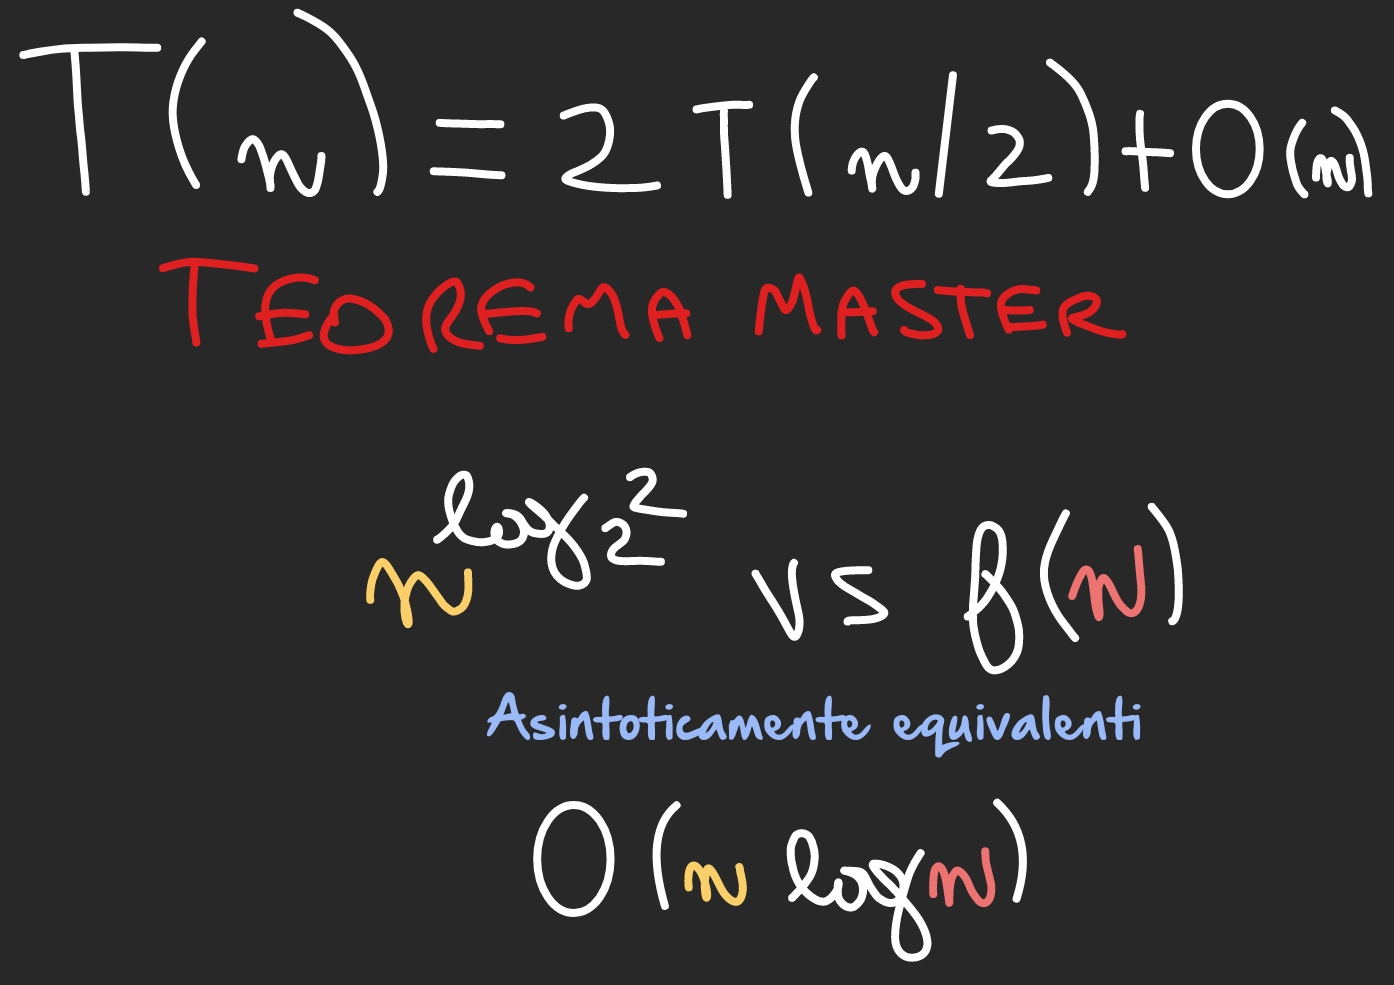 T(n) = 2T(n/2) + O(n)
TEOREMA MASTER
n^log₂2 vs f(n)
Asintoticamente equivalenti
O(n log n)